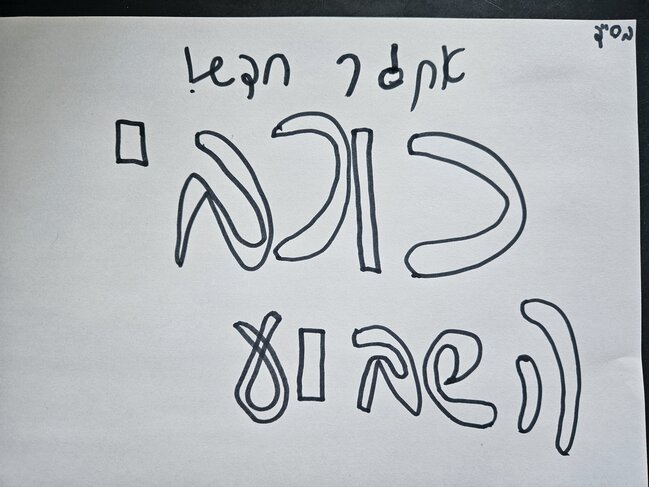 בס"ד
אתגר חדש!
כוכבי
השבוע